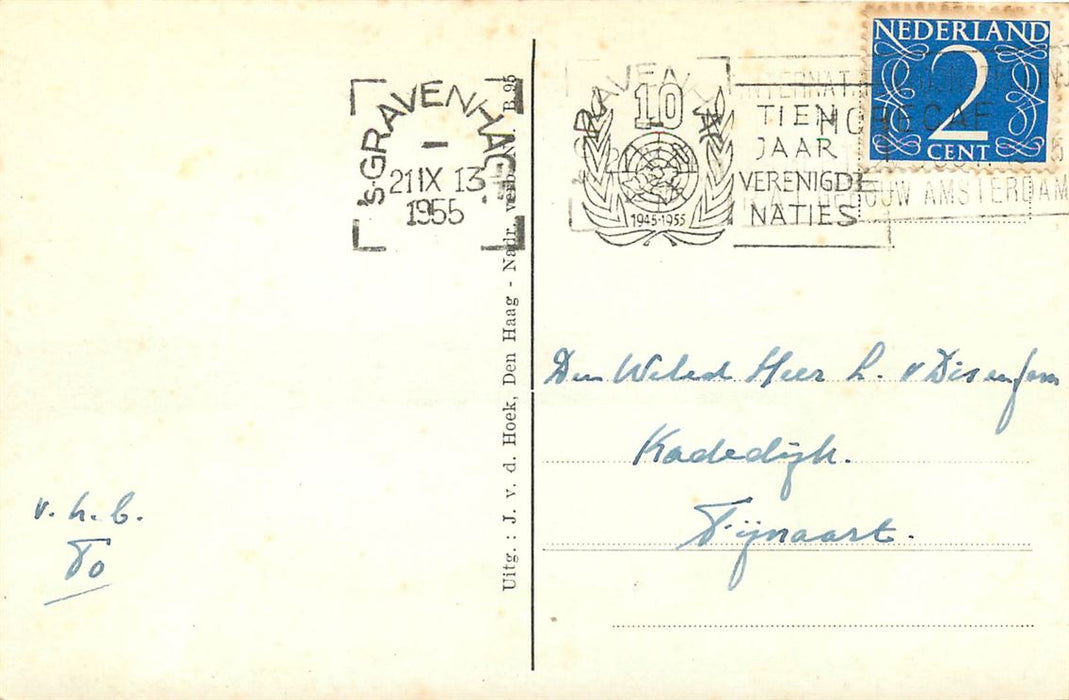 NEDERLAND
2
CENT
'S-GRAVENHAGE
21 IX 13
1955
10
1945-1955
TIEN
JAAR
VERENIGDE
NATIES
HORECAF
AMSTERDAM
Uitg. : J. v. d. Hoek, Den Haag - Nadr. verb. B 95
Den Weled Heer L. v
Kadedijk.
Fijnaart.
v. h. b.
To